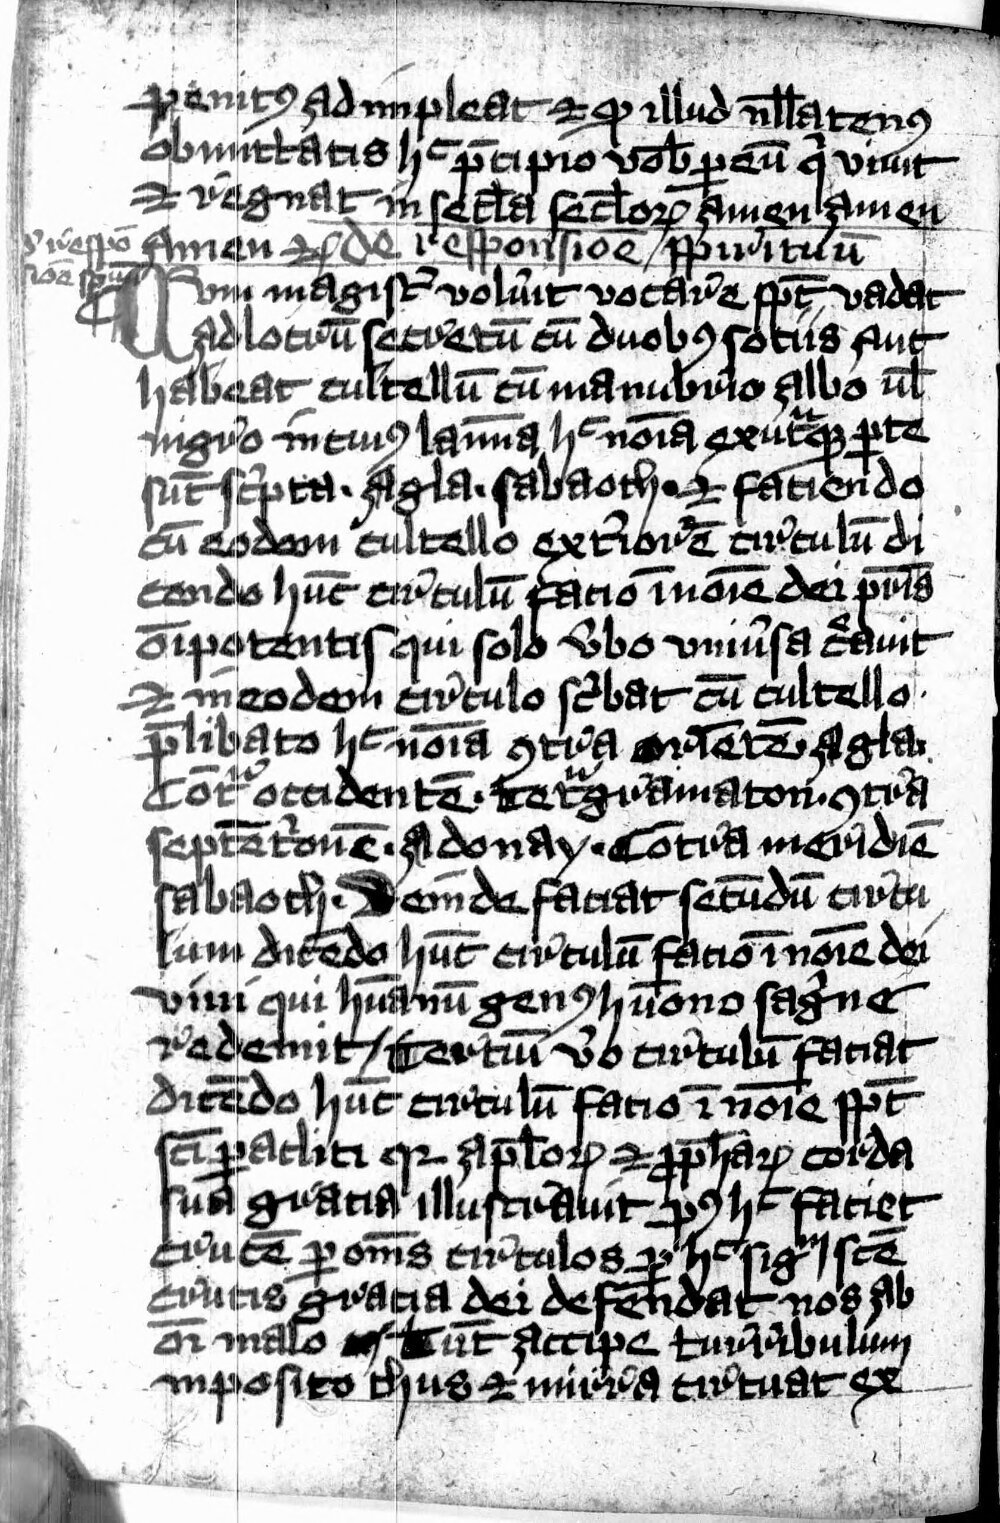 penitꝰ adimpleat ⁊ ꝓ illud nłłatenꝰ
obmittatis hͨ p̄cipio vob̄ ꝑ eū qͥ viuit
⁊ regnat in secl̄a secl̄oꝝ amen amen
amen ⁊ꝝ de responsiōe spirituū
Cum magist̓ voluˀit vocare sp̄t vadat
ad locrū secretū cū duobꝰ sociis aut
habeat cultellū cū manubrio albo ul̄
nigro in cuiꝰ lamina hͨ noīa ex utraqꝫ ꝑte
sūt scͥpta · agla · sabaoth · ⁊ faciendo
cū eodem cultello exteriorē circulū di
cendo hūc circulū facio ī noīe dei pr̄is
oīpotentis qui solo v̓bo vniu̓sa cͤauit
⁊ in eodem circulo scͥbat cū cultello ·
p̄libato hͨ noīa ꝯtra oriētē · agla ·
Cōtra occidentē · tetᵃgramaton · ꝯtra
septētͥonē · adonay · Cōtra meridiē
sabaoth · Deīde faciat secūdū circu
lum dicēdo hūc circulū facio ī noīe dei
viui qui hūanū genꝰ hūono sag̓ne
redemit / Tertiū v̓o circulū faciat
dicēdo hūc circulū facio ī noīe sp̄t
sc̄i ꝑacliti qꝛ apl̄oꝝ ⁊ ꝓph̄aꝝ corda
sua gratia illustrauit pꝰ hͨ faciet
crucē ꝑ om̄s circulos ꝑ hͨ sigᵐ scē
crucis gracia dei defendat nos ab
oī malo tūc accipe turribulum
inposito thus ⁊ mirra circuat ex
vͬ respō
siōe spūū